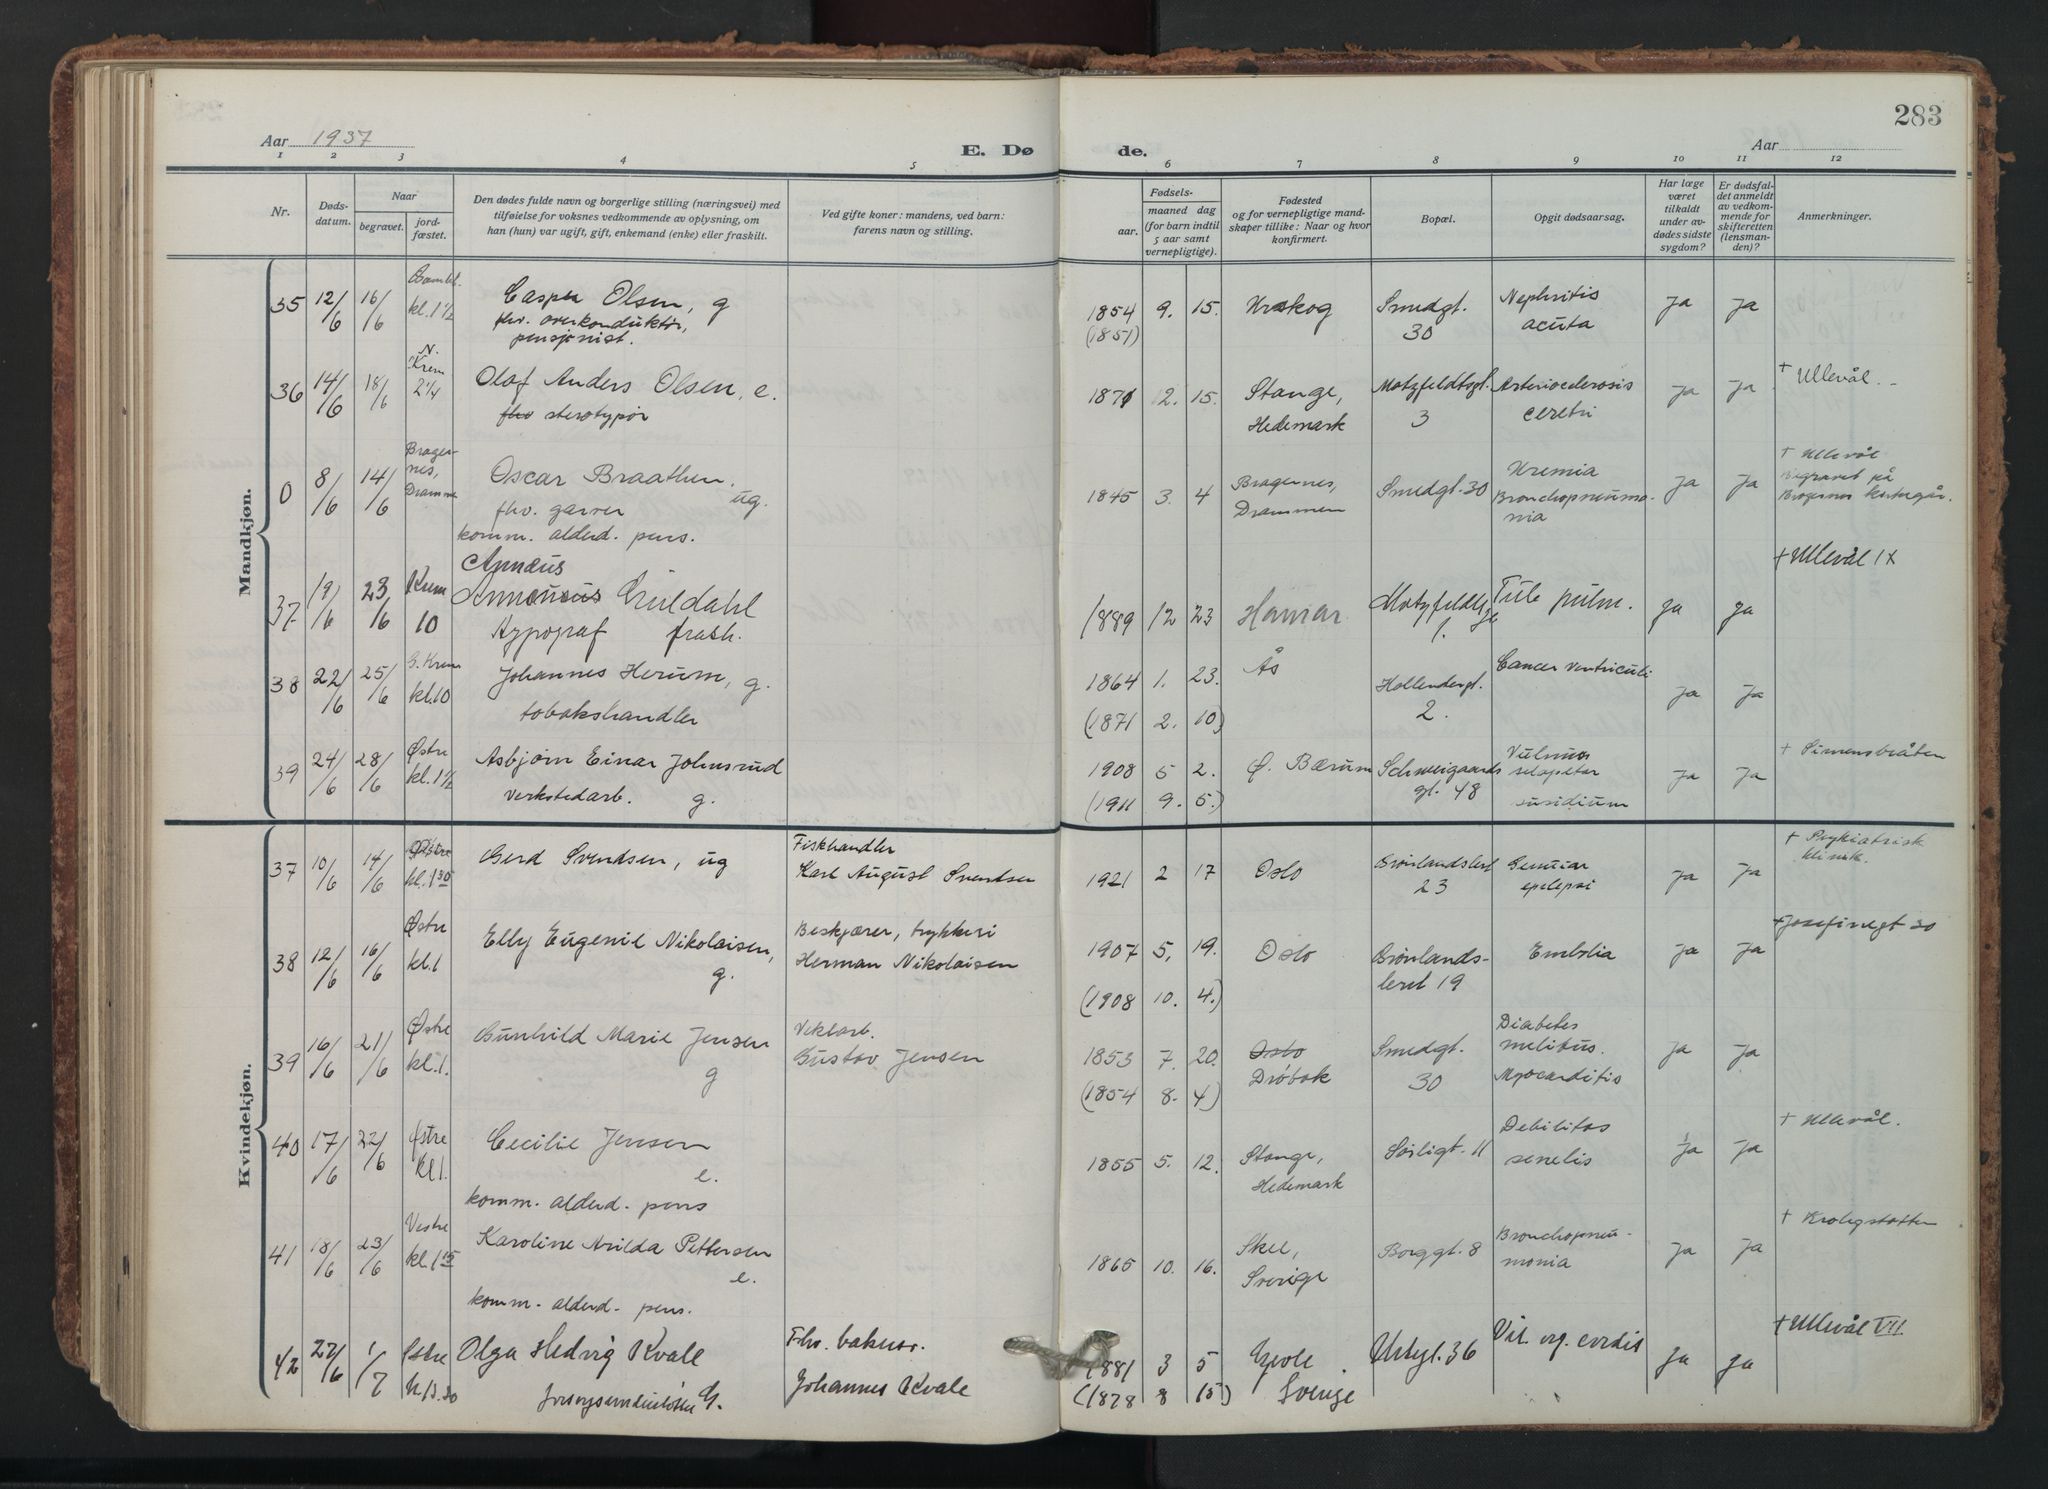 283
Aar 1937
E. Dø de.
Aar
1 2 3 4 5 6 7 8 9 10 11 12
Nr.
Dødsdatum.
Naar
begravet.
jordfæstet.
Den dødes fulde navn og borgerlige stilling (næringsvei) med
tilføielse for voksnes vedkommende av oplysning, om
han (hun) var ugift, gift, enkemand (enke) eller fraskilt.
Ved gifte koner: mandens, ved barn:
farens navn og stilling.
Fødsels-
aar.
maaned dag
(for barn indtil
5 aar samt
vernepligtige).
Fødested
og for vernepligtige mand-
skaper tillike: Naar og hvor
konfirmert.
Bopæl.
Opgit dødsaarsag.
Har læge
været
tilkaldt
under av-
dødes sidste
sygdom?
Er dødsfal-
det anmeldt
av vedkom-
mende for
skifteretten
(lensman-
den)?
Anmerkninger.
Mandkjøn.
35 12/6 16/6 Gamlel. kl. 1 1/2 Casper Olsen, g 1854 9. 15. Urskog Smedgt. Nephritis ja ja
fhv. overkonduktør, (1851) 30 acuta
pensjonist.
36 14/6 18/6 N. Krem 2 1/4 Olaf Anders Olsen, e. 1871 2. 15. Stange, Motzfeldtsgt. Arteriosclerosis ja ja + Ullevål.
fhv sterotypør Hedemark 3 cerebri
0 8/6 14/6 Bragernes, Drammen Oscar Braathen. ug. 1845 3. 4 Bragernes, Smedgt. 30 Uremia ja ja + Ullevål
fhv. garver Drammen Bronchopneumo- Begravet på
komm. alderd. pens. nia Bragernes kirkegår.
Annæus
37 19/6 23/6 Krem 10 Guldahl 1889 12 23 Hamar Motzfeldtsgt Tub pulm. ja ja + Ullevål IX
Typograf frask. 1.
38 22/6 25/6 G. Krem kl. 10 Johannes Herum, g. 1864 1. 23. Ås Hollendergt. Cancer ventriculi ja ja
tobakshandler (1871 2. 10) 2.
39 24/6 28/6 Østre kl. 1 1/2 Asbjørn Einar Johnsrud 1908 5 2. Ø. Bærum Schweigaards Vulnus ja ja + Simensbråten
verkstedarb. g. (1911 9. 5.) gt. 48 sclopetar
suisidium
Kvindekjøn.
37 10/6 14/6 Østre kl. 1 30 Gerd Svendsen, ug Fiskhandler 1921 2 17 Oslo Grønlandsleret Genuiar ja ja + Psykiatrisk
Karl August Svendsen 23 epilepsi klinik.
38 12/6 16/6 Østre kl. 1 Elly Eugenie Nikolaisen, Beskjærer, trykkeri 1907 5. 19. Oslo Grønlands- Embolia ja ja + Josefinegt 30
g. Herman Nikolaisen (1908 10. 4.) leret 19
39 16/6 21/6 Østre kl. 1. Gunhild Marie Jensen Vektarb. 1853 7. 20. Oslo Smedgt. Diabetes ja ja
g Gustav Jensen (1854 8. 4) Drøbak 30 melitus.
Myocarditis
40 17/6 22/6 Østre kl 1. Cecilie Jensen 1855 5. 12. Stange, Sørligt. 11 Debilitas ja ja + Ullevål.
e. Hedemark senelis
komm. alderd. pens
41 18/6 23/6 Vestre kl. 1 15 Karoline Arilda Pettersen 1865 10. 16. Skee, Borggt. 8 Bronchopneu- ja ja + Krohgstøtten
e. Sverige monia
komm. alderd. pens.
42 27/6 1/7 Østre kl 13.30 Olga Hedvig Kvale Fhv. baker. 1881 3 5 Gjøle Urtegt. 36 Vit. org. cordis ja ja + Ullevål VII
G. Johannes Kvale (1878 8 15) Sverige